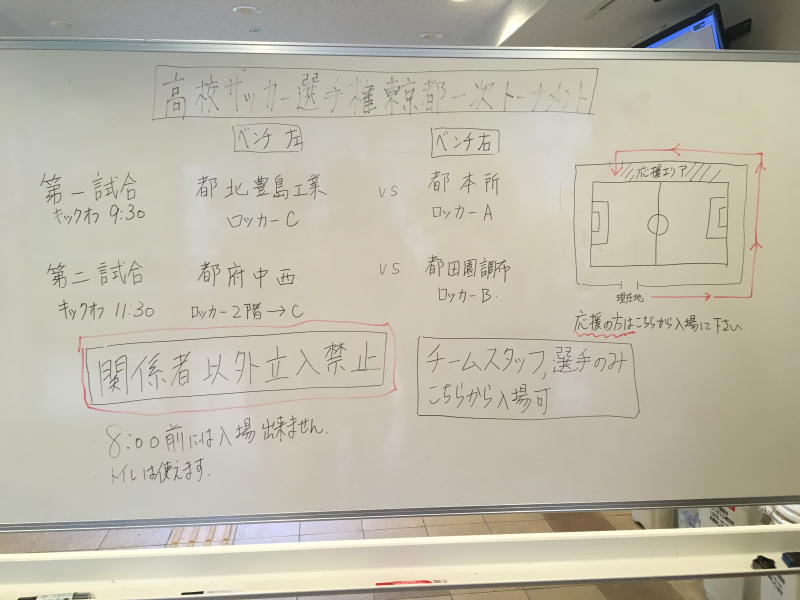 高校サッカー選手権東京都一次トーナメント
ベンチ 左
ベンチ右
第一試合
都北豊島工業
vs
都本所
キックオフ 9:30
ロッカー C
ロッカー A
第二試合
都府中西
vs
都田園調布
キックオフ 11:30
ロッカー 2階→C
ロッカー B.
応援エリア
現在地
応援の方はこちらから入場して下さい
関係者以外立入禁止
チームスタッフ,選手のみ
こちらから入場可
8:00前には入場出来ません.
トイレは使えます.